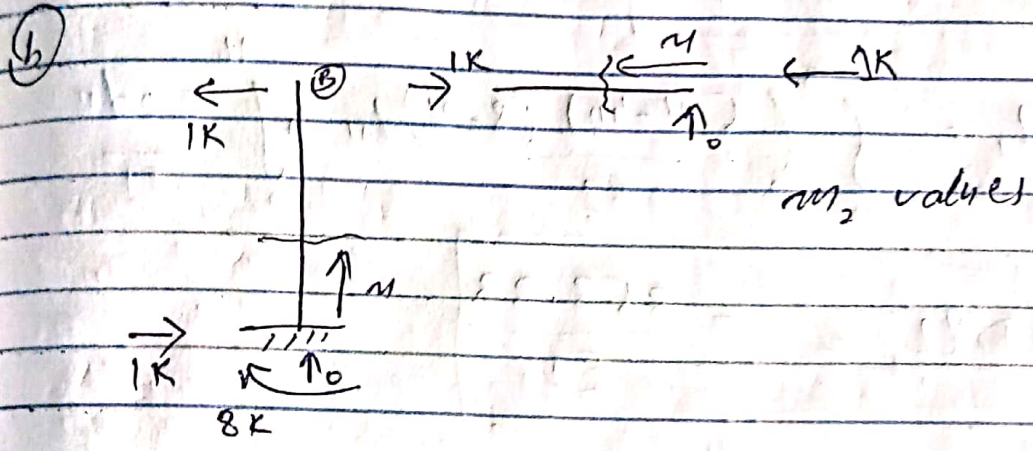 b
B 1K x 1K
1K 0
m₂ values
x
1K 0
8K